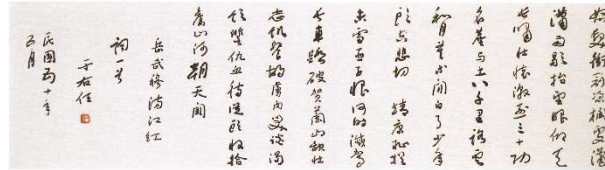 怒髮衝冠憑欄處瀟
瀟雨歇抬望眼仰天
長嘯壯懷激烈三十功
名塵與土八千里路雲
和月莫等閒白了少年
頭空悲切 靖康恥猶
未雪臣子恨何時滅駕
長車踏破賀蘭山缺壯
志飢餐胡虜肉笑談渴
飲血待從頭收拾
舊山河朝天闕
岳武穆滿江紅
詞一首
于右任
民國十年
五月